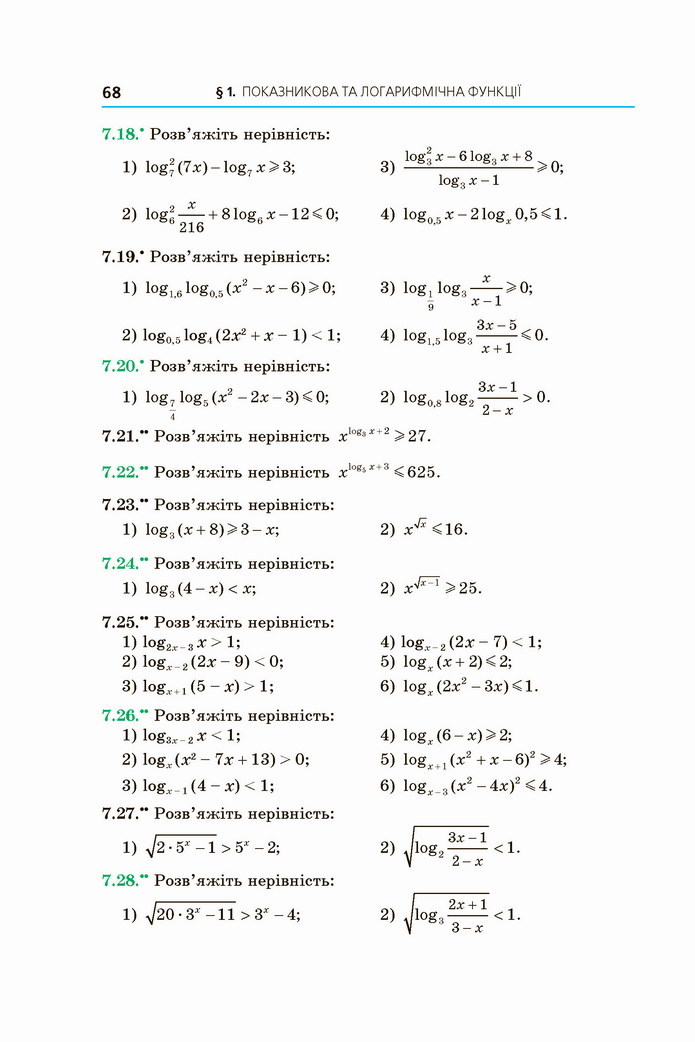 68 § 1. ПОКАЗНИКОВА ТА ЛОГАРИФМІЧНА ФУНКЦІЇ
7.18.• Розв’яжіть нерівність:
1) log₇² (7x) − log₇ x ⩾ 3; 3) (log₃² x − 6 log₃ x + 8)/(log₃ x − 1) ⩾ 0;
2) log₆² x/216 + 8 log₆ x − 12 ⩽ 0; 4) log₀,₅ x − 2 logₓ 0,5 ⩽ 1.
7.19.• Розв’яжіть нерівність:
1) log₁,₆ log₀,₅ (x² − x − 6) ⩾ 0; 3) log_{1/9} log₃ x/(x − 1) ⩾ 0;
2) log₀,₅ log₄ (2x² + x − 1) < 1; 4) log₁,₅ log₃ (3x − 5)/(x + 1) ⩽ 0.
7.20.• Розв’яжіть нерівність:
1) log_{7/4} log₅ (x² − 2x − 3) ⩽ 0; 2) log₀,₈ log₂ (3x − 1)/(2 − x) > 0.
7.21.•• Розв’яжіть нерівність x^{log₃ x + 2} ⩾ 27.
7.22.•• Розв’яжіть нерівність x^{log₅ x + 3} ⩽ 625.
7.23.•• Розв’яжіть нерівність:
1) log₃ (x + 8) ⩾ 3 − x; 2) x^{√x} ⩽ 16.
7.24.•• Розв’яжіть нерівність:
1) log₃ (4 − x) < x; 2) x^{√(x − 1)} ⩾ 25.
7.25.•• Розв’яжіть нерівність:
1) log_{2x − 3} x > 1; 4) log_{x − 2} (2x − 7) < 1;
2) log_{x − 2} (2x − 9) < 0; 5) logₓ (x + 2) ⩽ 2;
3) log_{x + 1} (5 − x) > 1; 6) logₓ (2x² − 3x) ⩽ 1.
7.26.•• Розв’яжіть нерівність:
1) log_{3x − 2} x < 1; 4) logₓ (6 − x) ⩾ 2;
2) logₓ (x² − 7x + 13) > 0; 5) log_{x + 1} (x² + x − 6)² ⩾ 4;
3) log_{x − 1} (4 − x) < 1; 6) log_{x − 3} (x² − 4x)² ⩽ 4.
7.27.•• Розв’яжіть нерівність:
1) √(2·5ˣ − 1) > 5ˣ − 2; 2) √(log₂ (3x − 1)/(2 − x)) < 1.
7.28.•• Розв’яжіть нерівність:
1) √(20·3ˣ − 11) > 3ˣ − 4; 2) √(log₃ (2x + 1)/(3 − x)) < 1.